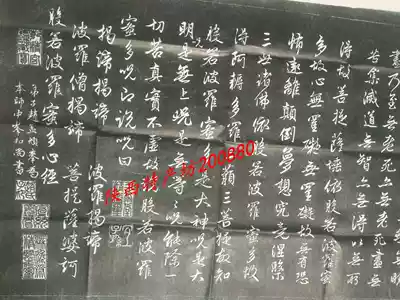 盡乃至無老死亦無老死盡無
苦集滅道無智亦無得以無所
得故菩提薩埵依般若波羅蜜
多故心無罣礙無罣礙故無有恐
怖遠離顛倒夢想究竟涅槃
三世諸佛依般若波羅蜜多故
得阿耨多羅三藐三菩提故知
般若波羅蜜多是大神咒是大
明咒是無上咒是無等等咒能除一
切苦真實不虛故說般若波羅
蜜多咒即說咒曰
揭諦揭諦 波羅揭諦
波羅僧揭諦 菩提薩婆訶
般若波羅蜜多心經
弟子趙孟頫奉為
本師中峯和尚書
陕西特产坊200880